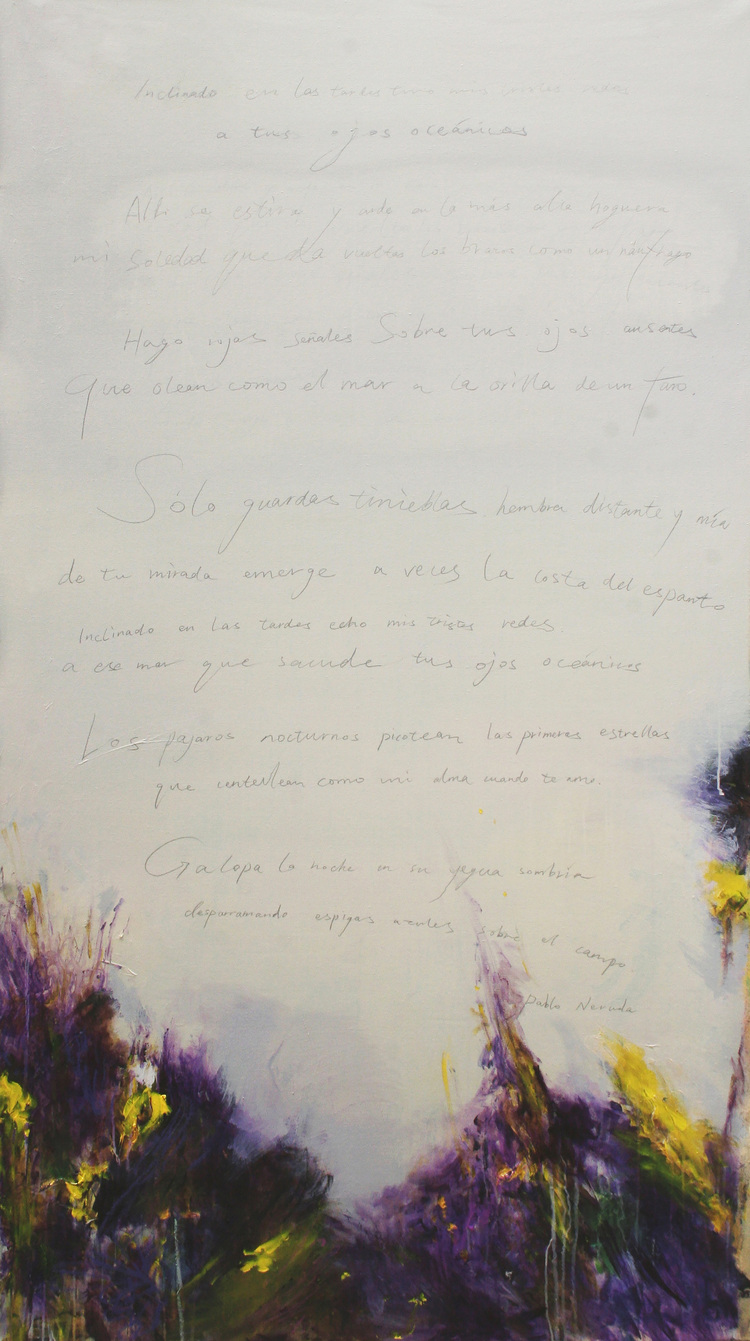 Inclinado en las tardes tiro mis tristes redes
a tus ojos oceánicos
Allí se estira y arde en la más alta hoguera
mi soledad que da vueltas los brazos como un náufrago
Hago rojas señales Sobre tus ojos ausentes
Que olean como el mar a la orilla de un faro.
Sólo guardas tinieblas hembra distante y mía
de tu mirada emerge a veces la costa del espanto
Inclinado en las tardes echo mis tristes redes.
a ese mar que sacude tus ojos oceánicos
Los pajaros nocturnos picotean las primeras estrellas
que centellean como mi alma cuando te amo.
Galopa la noche en su yegua sombria
desparramando espigas azules sobre el campo
Pablo Neruda